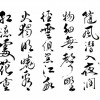 隨風潛入夜潤
物細無聲野
徑雲俱黑江船
火獨明曉看
紅濕處花重